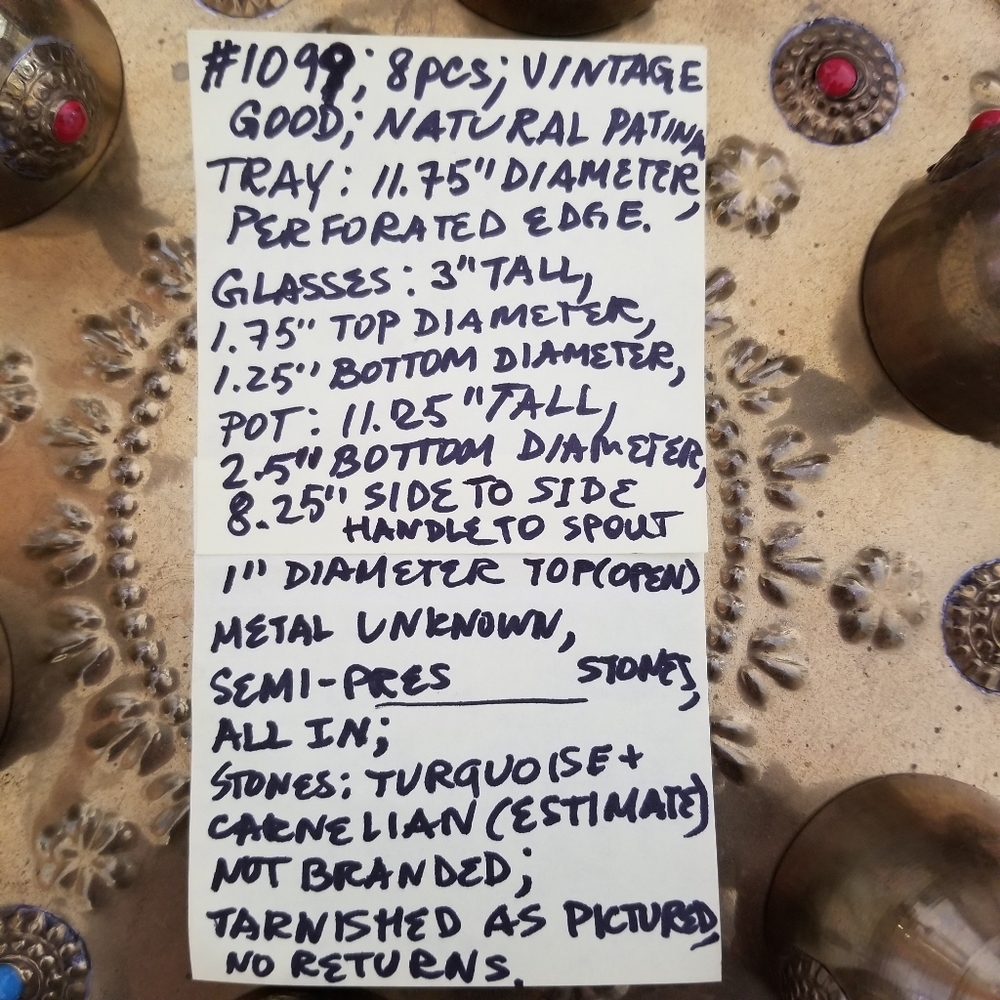 #1099; 8pcs; VINTAGE
GOOD; NATURAL PATINA
TRAY: 11.75" DIAMETER,
PERFORATED EDGE.
GLASSES: 3" TALL,
1.75" TOP DIAMETER,
1.25" BOTTOM DIAMETER,
POT: 11.25" TALL,
2.5" BOTTOM DIAMETER,
8.25" SIDE TO SIDE
HANDLE TO SPOUT
1" DIAMETER TOP(OPEN)
METAL UNKNOWN,
SEMI-PRES______ STONES,
ALL IN;
STONES: TURQUOISE +
CARNELIAN (ESTIMATE)
NOT BRANDED;
TARNISHED AS PICTURED,
NO RETURNS.